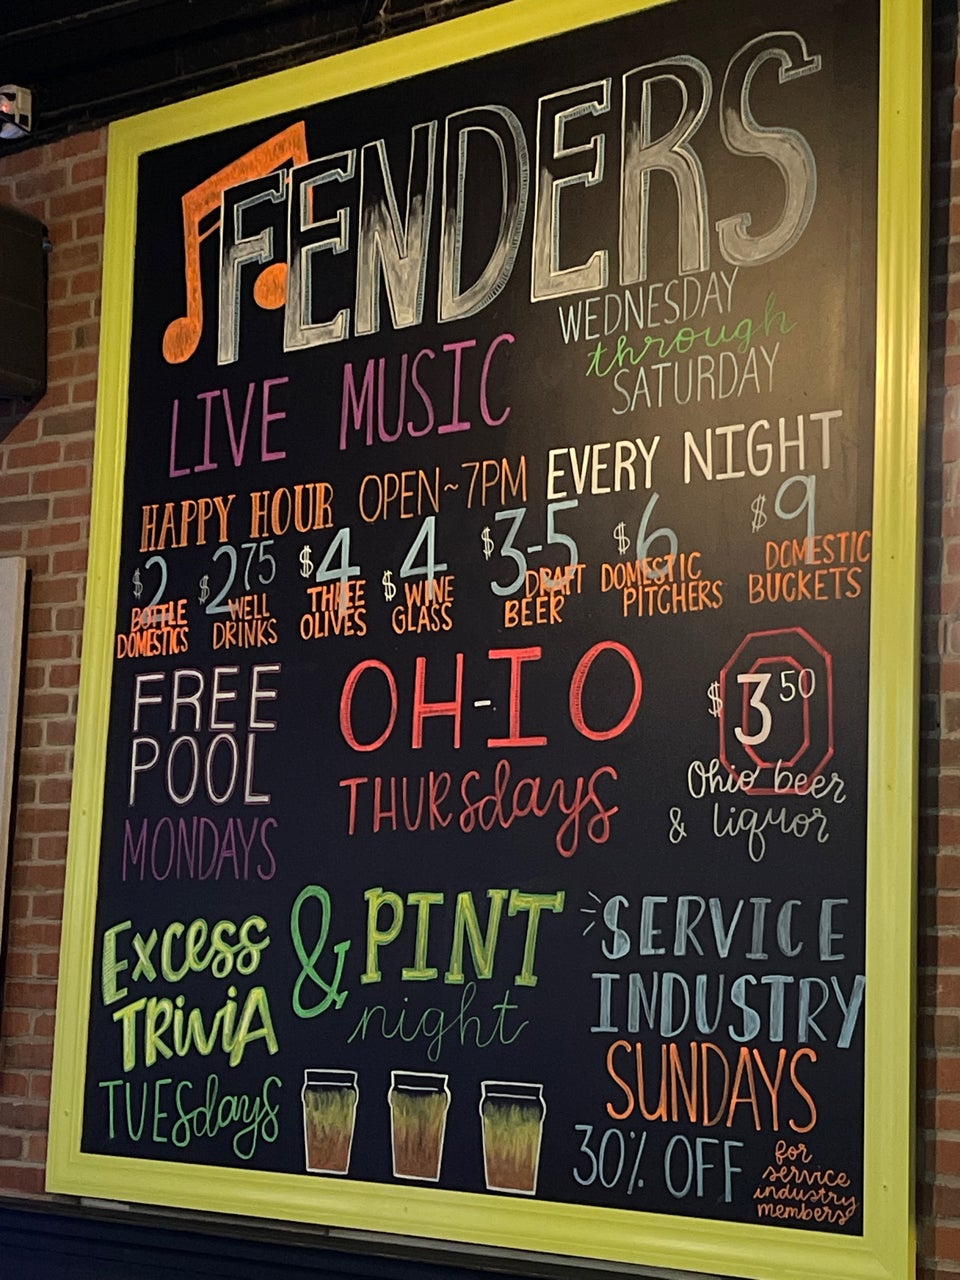 FENDERS
LIVE MUSIC
WEDNESDAY
through
SATURDAY
HAPPY HOUR OPEN~7PM EVERY NIGHT
$2 BOTTLE DOMESTICS
$2.75 WELL DRINKS
$4 THREE OLIVES
$4 WINE GLASS
$3-5 DRAFT BEER
$6 DOMESTIC PITCHERS
$9 DOMESTIC BUCKETS
FREE
POOL
MONDAYS
OH-IO
THURSdays
$3.50
Ohio beer
& liquor
Excess
TRiviA
TUESdays
& PINT
night
SERVICE
INDUSTRY
SUNDAYS
30% OFF
for
service
industry
members